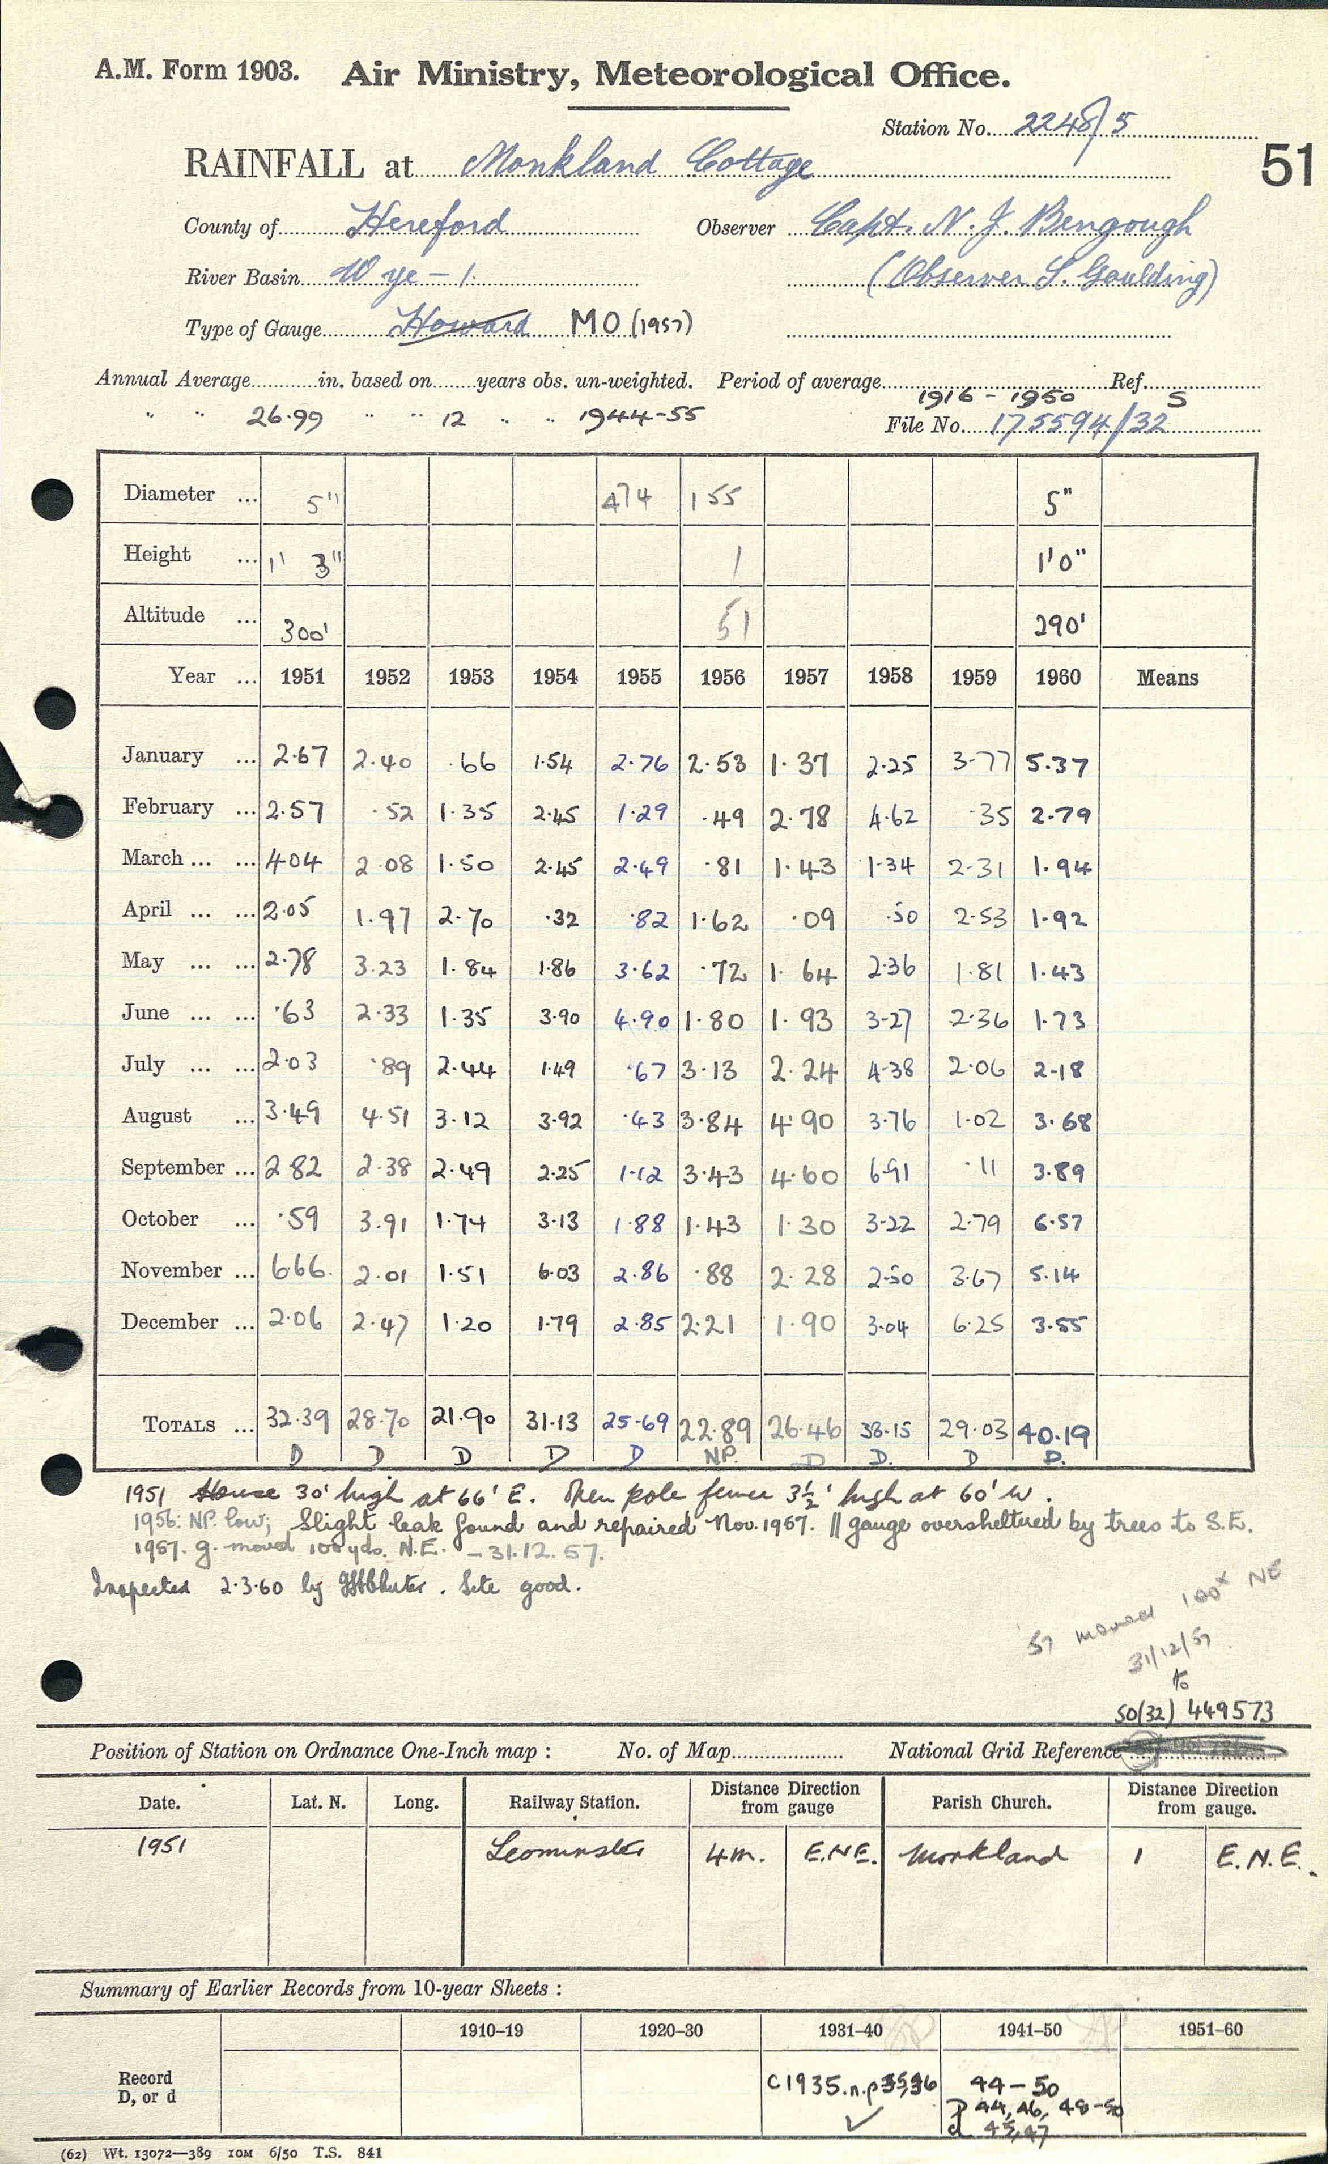 A.M. Form 1903. Air Ministry, Meteorological Office.
Station No. 2248/5
51
RAINFALL at Monkland Cottage
County of Hereford Observer Capt. N. J. Bengough
River Basin Wye - 1. (Observer S. Goulding)
Type of Gauge Howard MO (1957)
Annual Average in. based on years obs. un-weighted. Period of average 1916 - 1950 Ref. S
" " 26.99 " " 12 " " 1944-55 File No. 175594/32
Diameter ... 5" 474 155 5"
Height ... 1' 3" 1 1'0"
Altitude ... 300' 51 290'
Year ... 1951 1952 1953 1954 1955 1956 1957 1958 1959 1960 Means
January ... 2.67 2.40 .66 1.54 2.76 2.53 1.37 2.25 3.77 5.37
February ... 2.57 .52 1.35 2.45 1.29 .49 2.78 4.62 .35 2.79
March ... ... 4.04 2.08 1.50 2.45 2.49 .81 1.43 1.34 2.31 1.94
April ... ... 2.05 1.97 2.70 .32 .82 1.62 .09 .50 2.53 1.92
May ... ... 2.78 3.23 1.84 1.86 3.62 .72 1.64 2.36 1.81 1.43
June ... ... .63 2.33 1.35 3.90 4.90 1.80 1.93 3.27 2.36 1.73
July ... ... 2.03 .89 2.44 1.49 .67 3.13 2.24 4.38 2.06 2.18
August ... 3.49 4.51 3.12 3.92 .43 3.84 4.90 3.76 1.02 3.68
September ... 2.82 2.38 2.49 2.25 1.12 3.43 4.60 6.91 .11 3.89
October ... .59 3.91 1.74 3.13 1.88 1.43 1.30 3.22 2.79 6.57
November ... 6.66 2.01 1.51 6.03 2.86 .88 2.28 2.50 3.67 5.14
December ... 2.06 2.47 1.20 1.79 2.85 2.21 1.90 3.04 6.25 3.55
TOTALS ... 32.39 28.70 21.90 31.13 25.69 22.89 26.46 38.15 29.03 40.19
D D D D D NP. D D. D D.
1951 House 30' high at 66' E. Open pole fence 3½' high at 60' W.
1956: NP. low; Slight leak found and repaired Nov. 1957. || gauge oversheltered by trees to S.E.
1957. g. moved 100 yds. N.E. - 31.12.57.
Inspected 2.3.60 by . Site good.
57 moved 100x NE
31/12/57
to
50(32) 449573
Position of Station on Ordnance One-Inch map : No. of Map National Grid Reference
Date. Lat. N. Long. Railway Station. Distance Direction from gauge Parish Church. Distance Direction from gauge.
1951 Leominster 4m. E.N.E. Monkland 1 E.N.E.
Summary of Earlier Records from 10-year Sheets :
1910-19 1920-30 1931-40 1941-50 1951-60
Record D, or d C1935. n.p 35,36 44-50
D 44, 46, 48-50
d 45, 47
(62) Wt. 13072—389 10M 6/50 T.S. 841